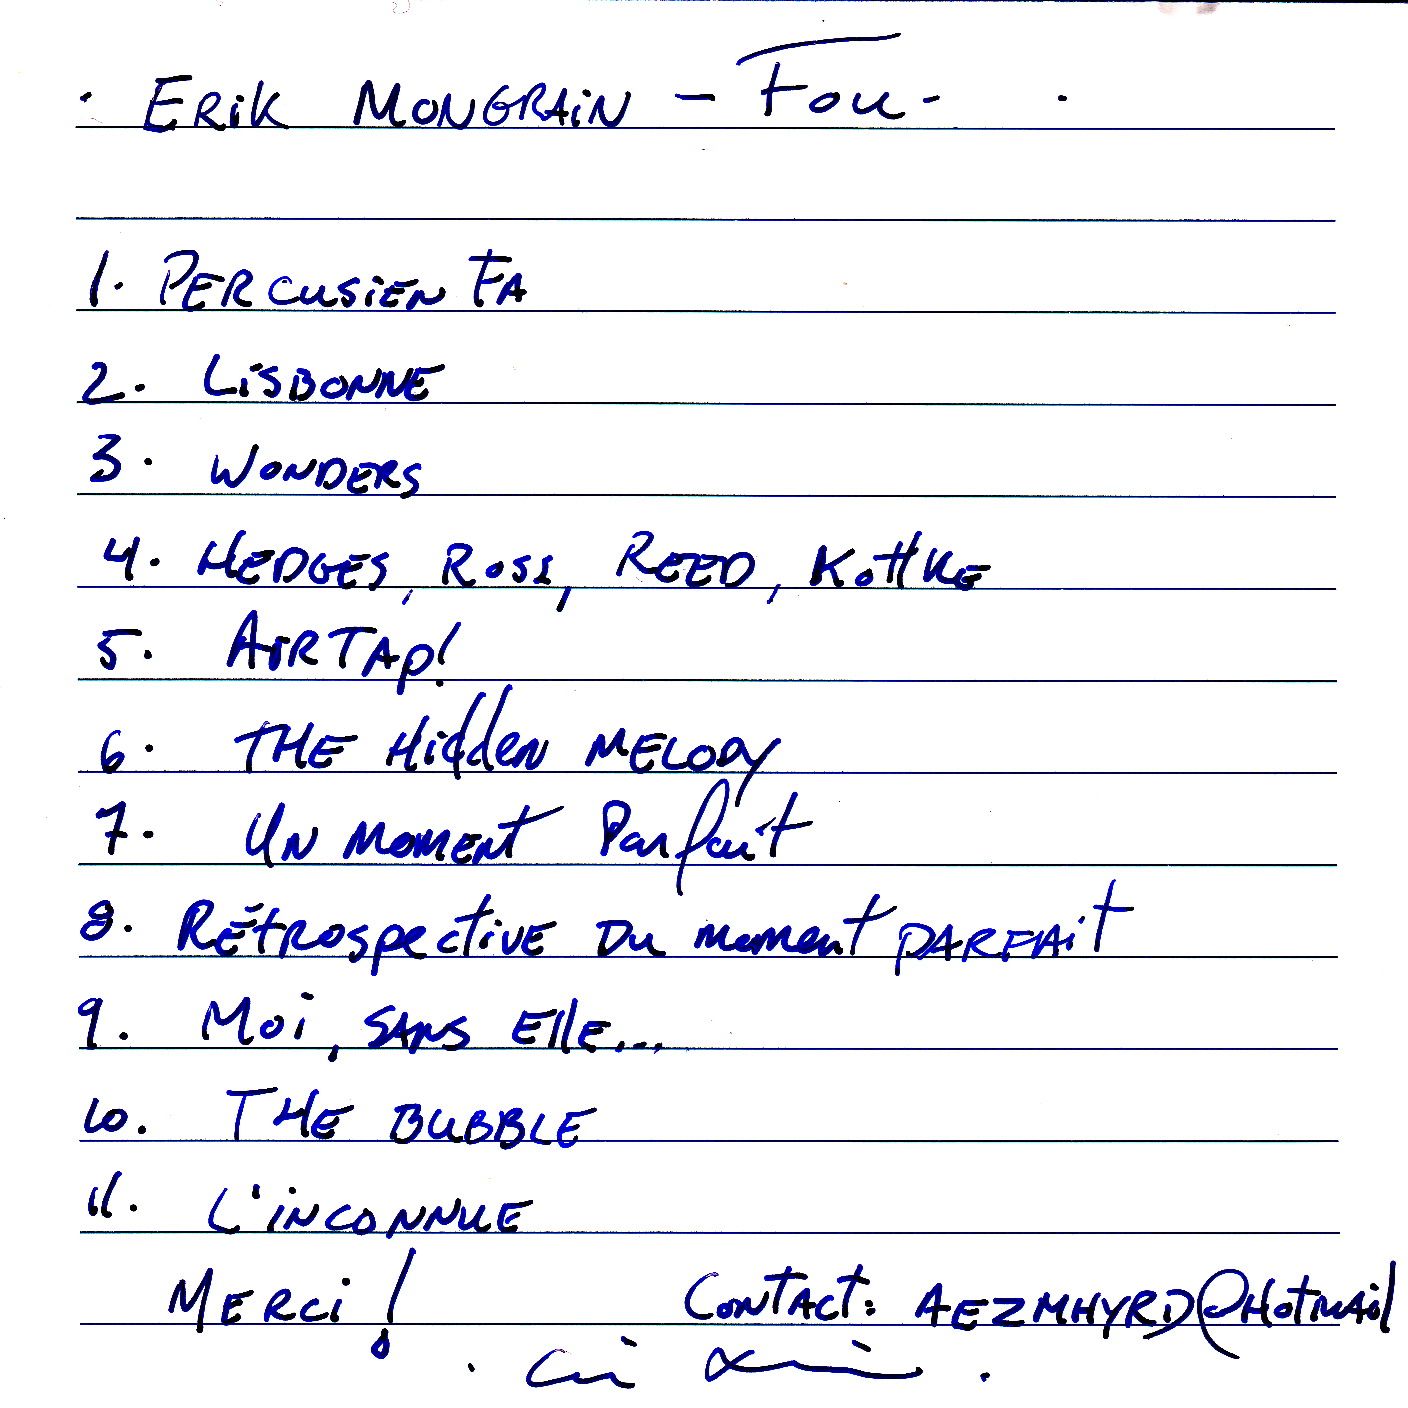 · ERiK MONGRAiN - Fou - ·
1. PERCUSiEN FA
2. LiSBONNE
3. WONDERS
4. HEDGES, ROSS, REED, KottKE
5. AiRTAp!
6. THE Hidden MELODY
7. UN MOMENT Parfait
8. RÉtROspectiVE DU moment PARFAit
9. Moi, SANS EllE...
10. THE BUBBLE
11. L'iNCONNUE
MERCi!
CONTACT: AEZMHYRD@HOtmAil